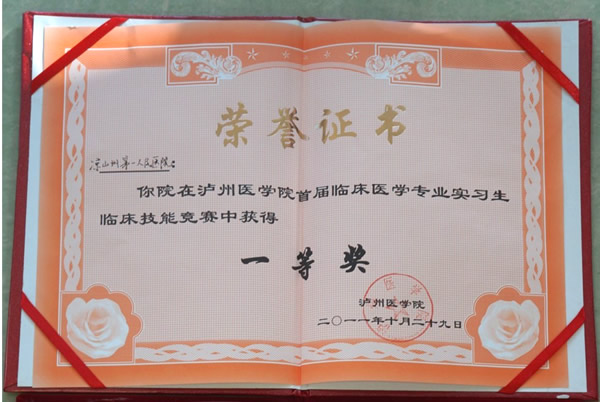 荣誉证书
凉山州第一人民医院:
你院在泸州医学院首届临床医学专业实习生
临床技能竞赛中获得
一等奖
泸州医学院
二〇一一年十月二十九日